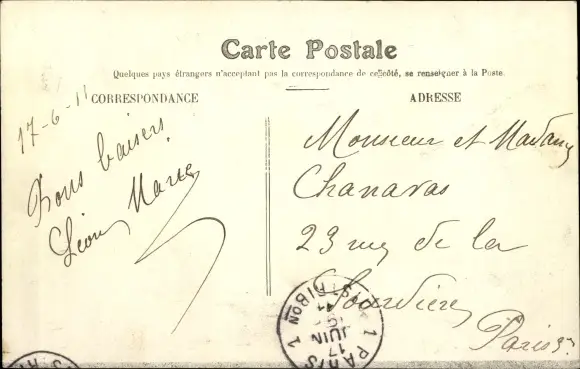 Carte Postale
Quelques pays étrangers n'acceptant pas la correspondance de ce côté, se renseigner à la Poste.
CORRESPONDANCE
ADRESSE
17-6-11
Bons baisers
Léon Marie
Monsieur et Madame
Chanavas
23 rue de la
Sourdière
Paris
PARIS 1
DISTRIBON
17
JUIN
11